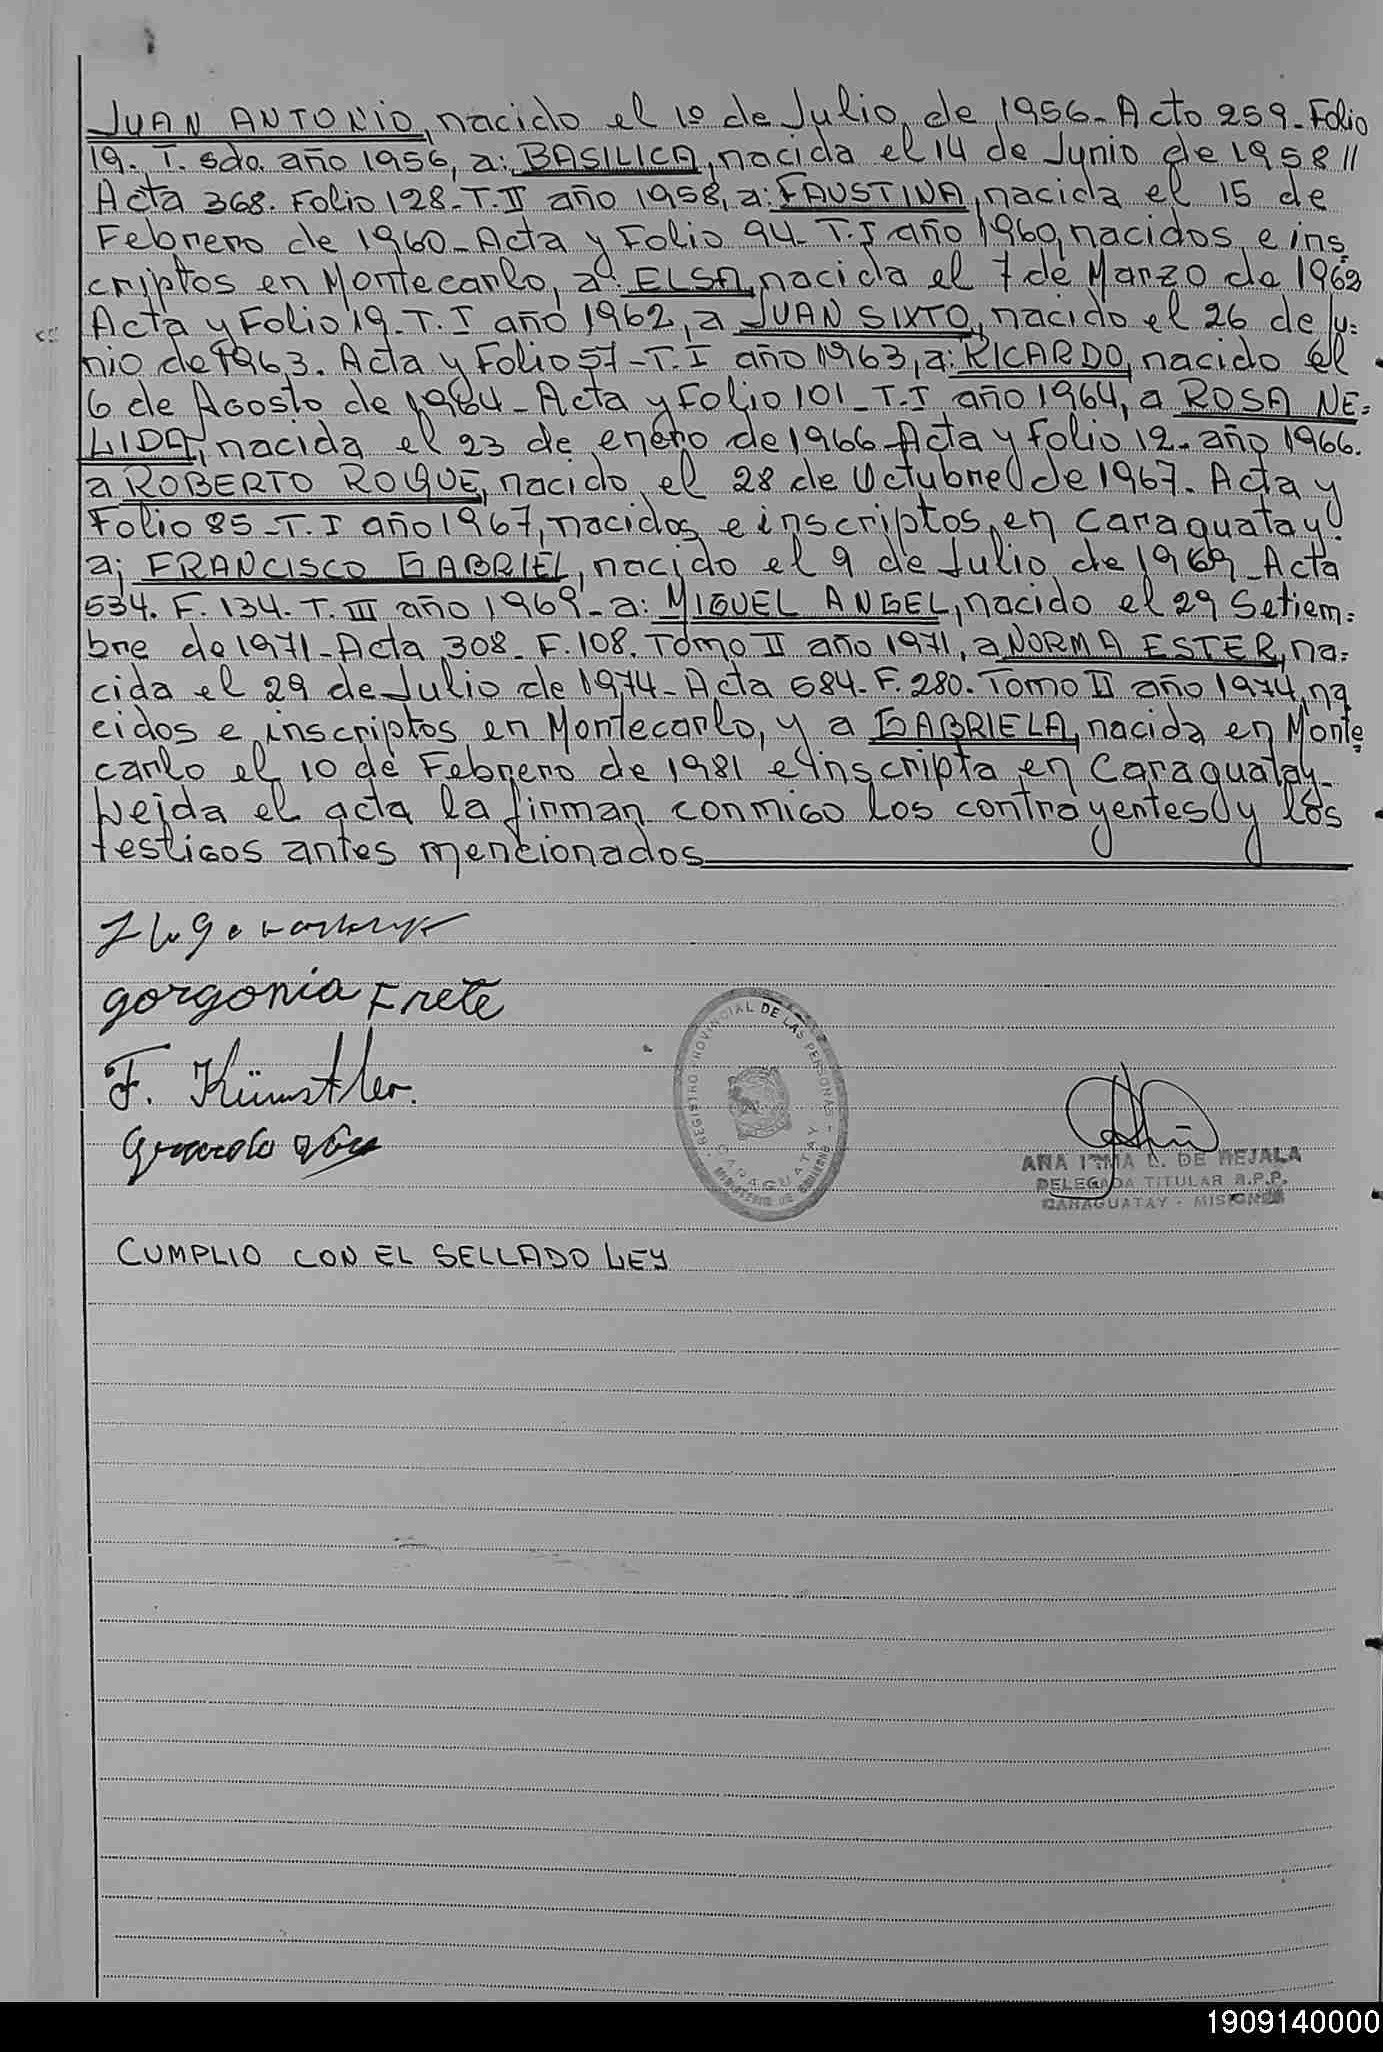 JUAN ANTONIO, nacido el 1º de Julio, de 1956- Acto 259- Folio
19. T. sdo. año 1956, a: BASILICA, nacida el 14 de Junio de 1958 //
Acta 368. Folio 128- T. II año 1958, a: FAUSTINA, nacida el 15 de
Febrero de 1960- Acta y Folio 94- T. I año 1960, nacidos e ins=
criptos en Montecarlo, a: ELSA, nacida el 7 de Marzo de 1962
Acta y Folio 19- T. I año 1962, a JUAN SIXTO, nacido el 26 de Ju=
nio de 1963. Acta y Folio 57- T. I año 1963, a: RICARDO, nacido el
6 de Agosto de 1964- Acta y Folio 101- T. I año 1964, a ROSA NE=
LIDA, nacida el 23 de enero de 1966- Acta y Folio 12- año 1966.
a ROBERTO ROQUE, nacido el 28 de Octubre de 1967. Acta y
Folio 85- T. I año 1967, nacidos e inscriptos en Caraguatay.
a; FRANCISCO GABRIEL, nacido el 9 de Julio de 1969- Acta
534. F. 134. T. III año 1969- a: MIGUEL ANGEL, nacido el 29 Setiem=
bre de 1971- Acta 308- F. 108. Tomo II año 1971, a NORMA ESTER, na=
cida el 29 de Julio de 1974- Acta 684- F. 280. Tomo II año 1974, na
cidos e inscriptos en Montecarlo, y a GABRIELA, nacida en Monte=
carlo el 10 de Febrero de 1981 e inscripta en Caraguatay-
Leida el acta la firman conmigo los contrayentes y los
testigos antes mencionados
gorgonia Frete
F. Künstler.
REGISTRO PROVINCIAL DE LAS PERSONAS
CARAGUATAY
MINISTERIO DE GOBIERNO
ANA IRMA L. DE MEJALA
DELEGADA TITULAR R.P.P.
CARAGUATAY - MISIONES
CUMPLIO CON EL SELLADO LEY
1909140000